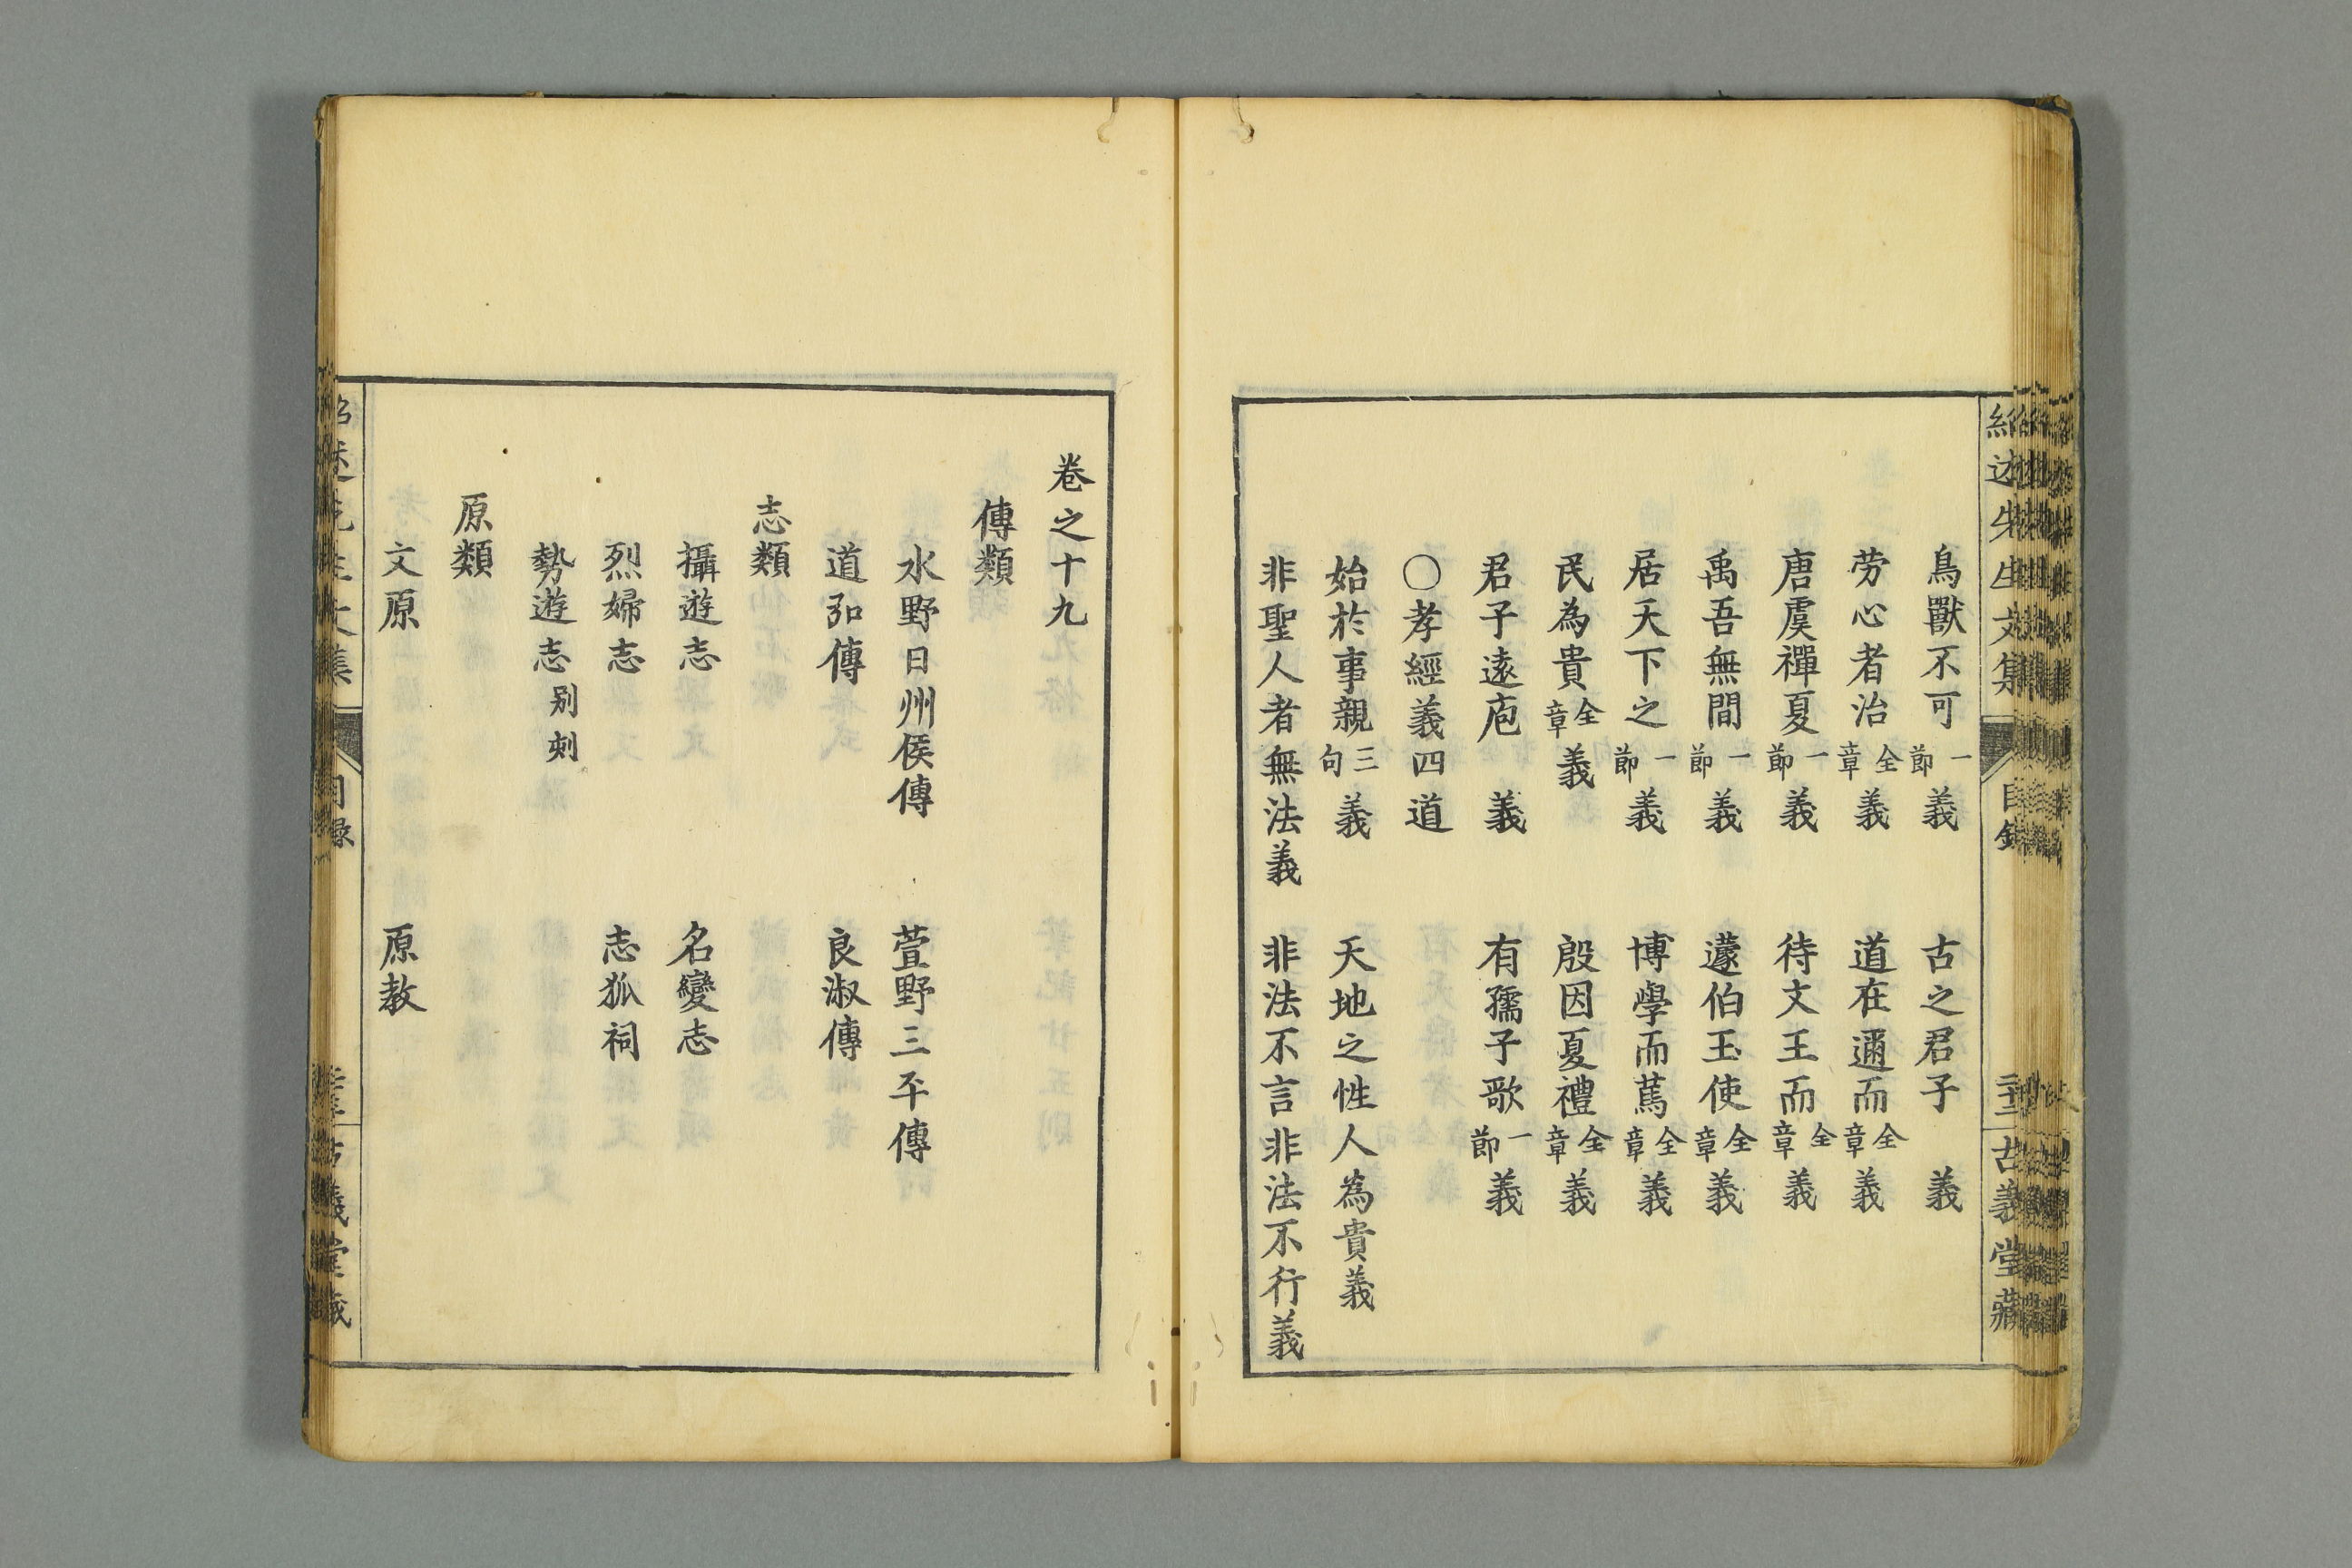 鳥獸不可一節義　古之君子　義
劳心者治全章義　道在邇而全章義
唐虞禪夏一節義　待文王而全章義
禹吾無間一節義　蘧伯玉使全章義
居天下之一節義　博學而篤全章義
民為貴全章義　殷因夏禮全章義
君子遠庖　義　有孺子歌一節義
〇孝經義四道
始於事親三句義　天地之性人為貴義
非聖人者無法義　非法不言非法不行義
卷之十九
傳類
水野日州侯傳　萱野三平傳
道弘傳　良淑傳
志類
攝遊志　名變志
烈婦志　志狐祠
勢遊志别刺
原類
文原　原教
紹述先生文集　目録　古義堂藏